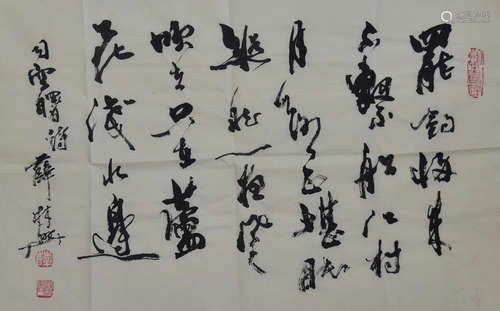 罷釣歸来
不繫船江村
月落正堪眠
縱然一夜風
吹去只在蘆
花淺水邊
司空曙詩 薛林